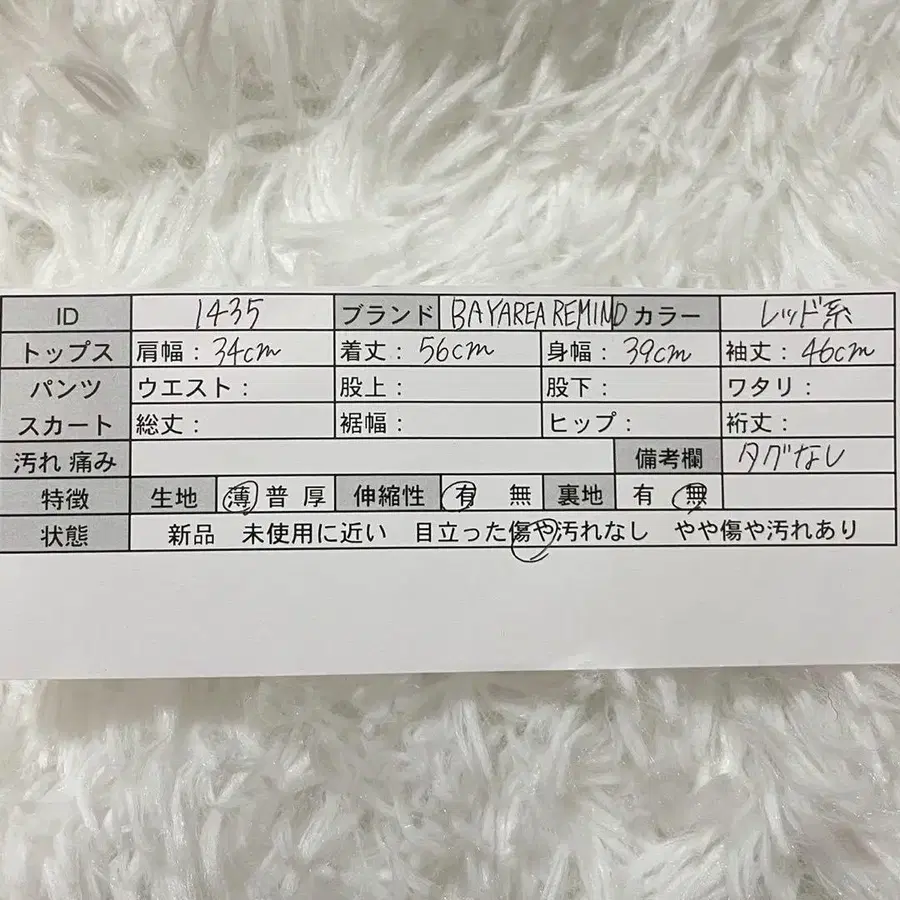 ID 1435 ブランド BAYAREA REMIND カラー レッド系
トップス 肩幅：34cm 着丈：56cm 身幅：39cm 袖丈：46cm
パンツ ウエスト： 股上： 股下： ワタリ：
スカート 総丈： 裾幅： ヒップ： 裄丈：
汚れ 痛み 備考欄 タグなし
特徴 生地 薄 普 厚 伸縮性 有 無 裏地 有 無
状態 新品 未使用に近い 目立った傷や汚れなし やや傷や汚れあり